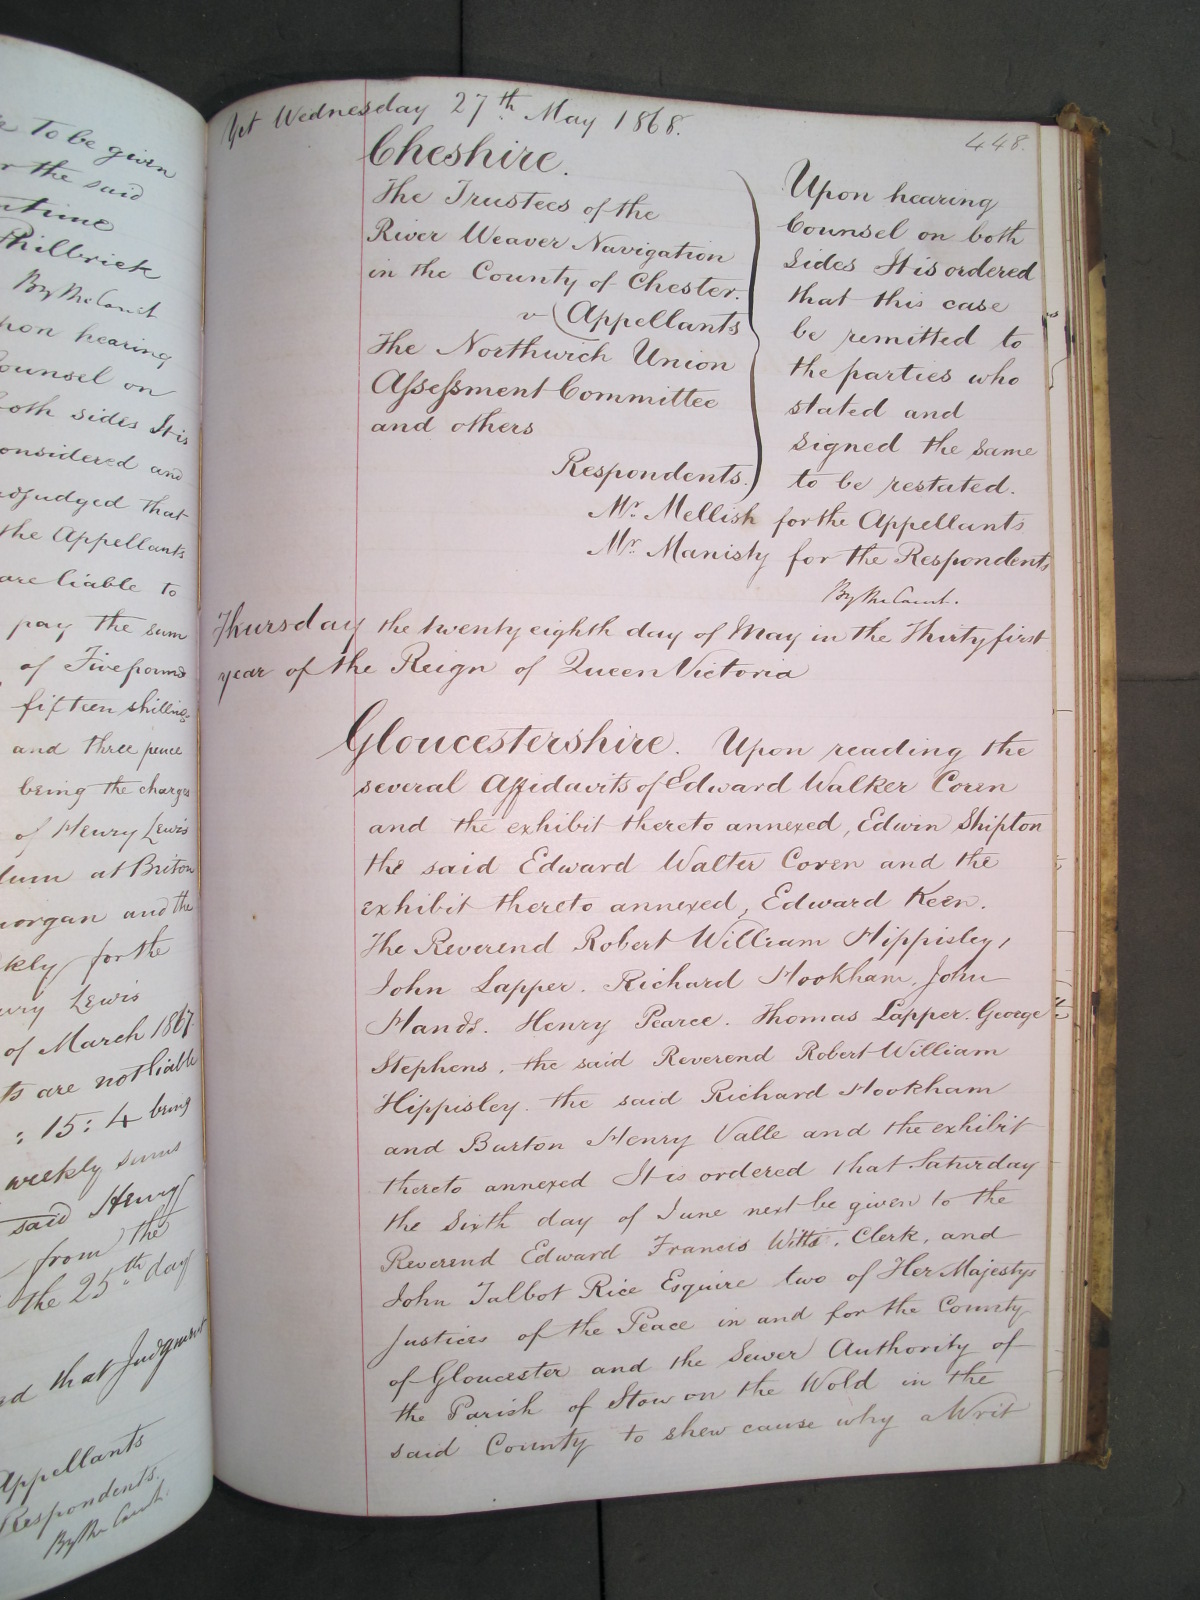 To be given
r the said
ntime
Philbrick
By the Court
pon hearing
ounsel on
both sides It is
onsidered and
adjudged that
the Appellants
are liable to
pay the sum
of Five pounds
fifteen shillings
and three pence
being the charges
of Henry Lewis
at Briton
morgan and the
kly for the
nry Lewis
of March 1867
ts are not liable
: 15 : 4 being
weekly sums
said Henry
from the
the 25th day
nd that Judgment
Appellants
Respondents.
By the Court.
Yet Wednesday 27th May 1868.
448.
Cheshire.
The Trustees of the
River Weaver Navigation
in the County of Chester.
v Appellants
The Northwich Union
Assessment Committee
and others
Respondents.
Upon hearing
Counsel on both
sides It is ordered
that this case
be remitted to
the parties who
stated and
signed the same
to be restated.
Mr. Mellish for the Appellants
Mr. Manisty for the Respondents
By the Court.
Thursday the twenty eighth day of May in the Thirty first
year of the Reign of Queen Victoria
Gloucestershire. Upon reading the
several Affidavits of Edward Walker Coren
and the exhibit thereto annexed, Edwin Shipton
the said Edward Walter Coren and the
exhibit thereto annexed, Edward Keen.
The Reverend Robert William Hippisley,
John Lapper. Richard Hookham, John
Hands. Henry Pearce. Thomas Lapper. George
Stephens, the said Reverend Robert William
Hippisley. the said Richard Hookham
and Burton Henry Valle and the exhibit
thereto annexed It is ordered that Saturday
the Sixth day of June next be given to the
Reverend Edward Francis Witts, Clerk, and
John Talbot Rice Esquire two of Her Majestys
Justices of the Peace in and for the County
of Gloucester and the Sewer Authority of
the Parish of Stow on the Wold in the
said County to shew cause why a Writ